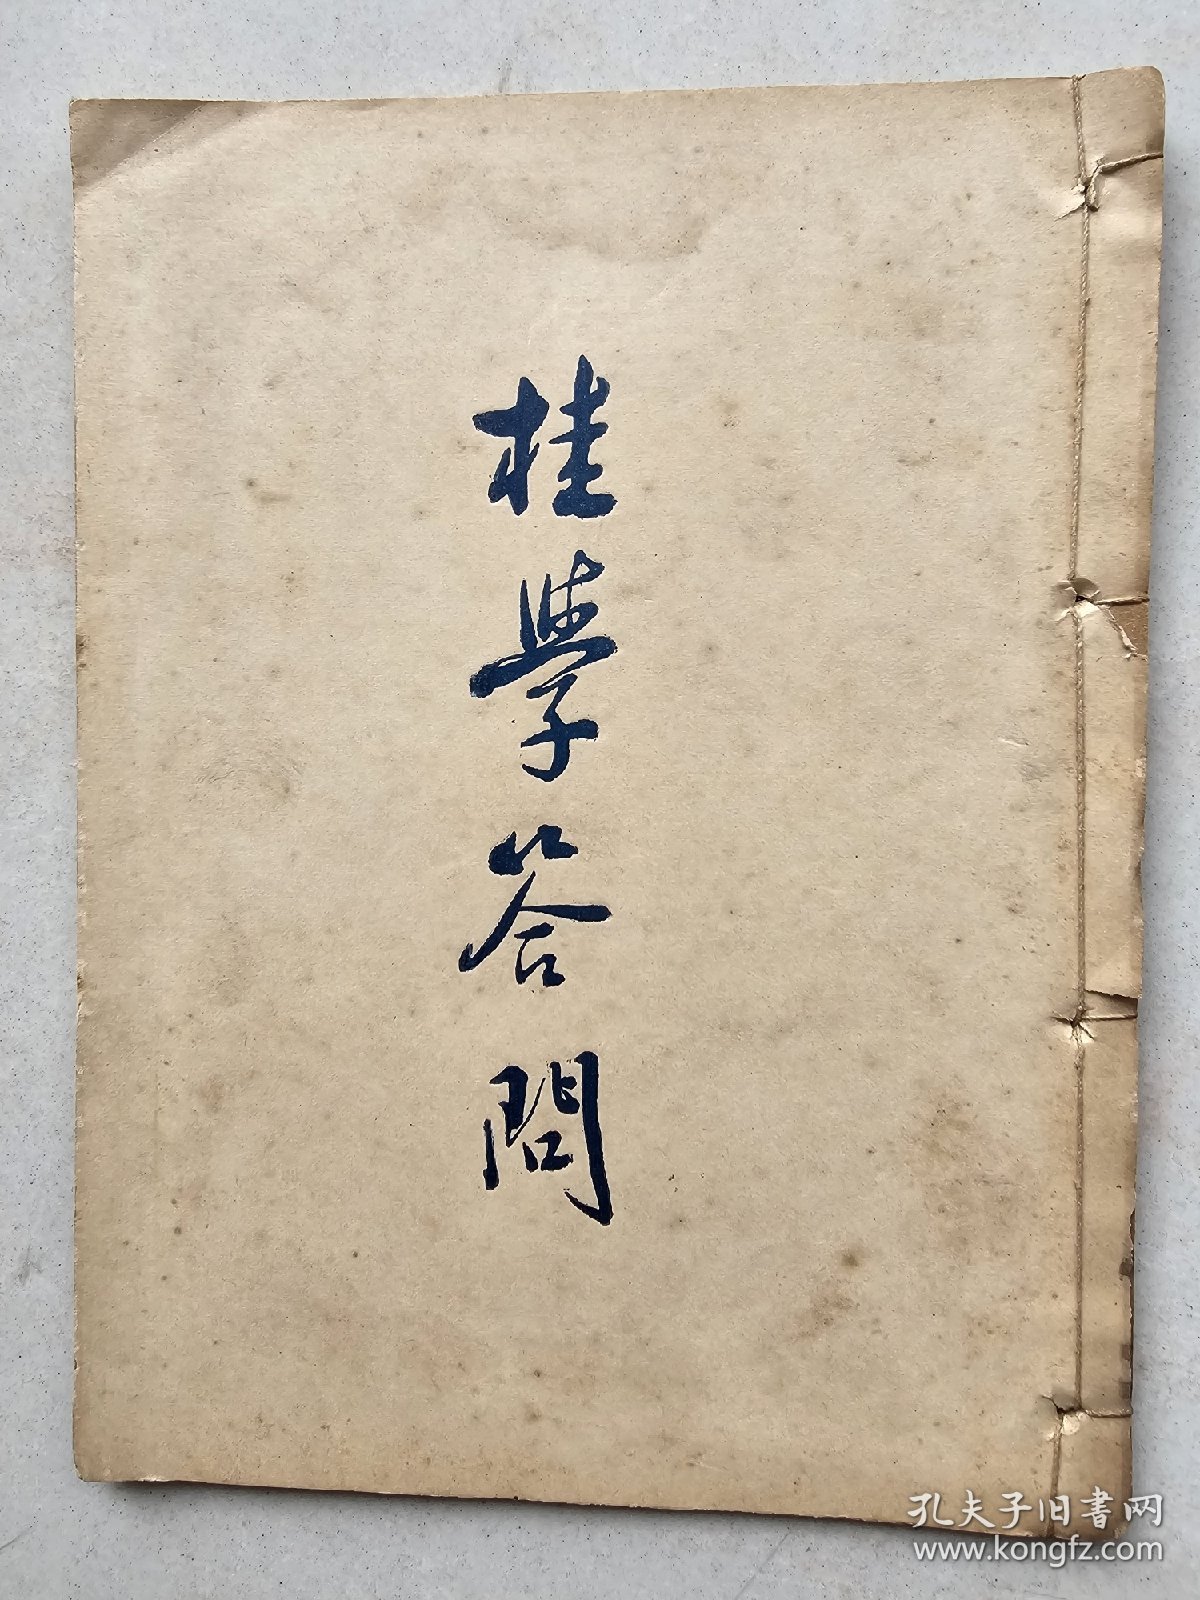 桂學答問
孔夫子旧書网
www.kongfz.com